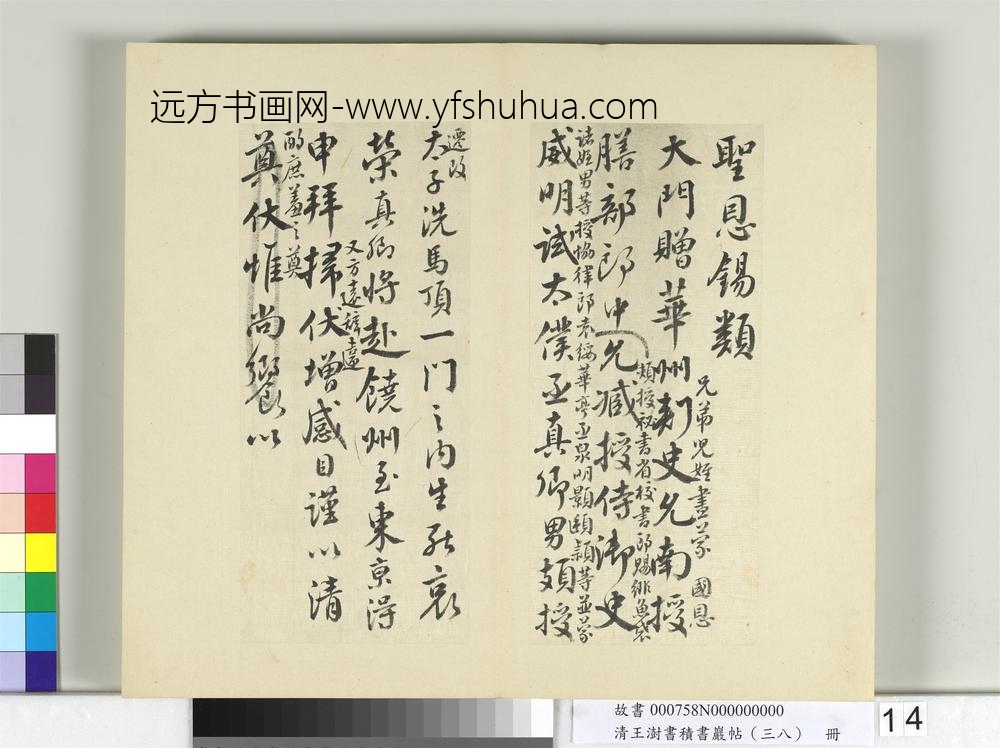 远方书画网-www.yfshuhua.com
聖恩錫類
兄弟兒姪盡蒙 國恩
大門贈華州刺史允南授
頍授秘書省校書郎賜緋魚袋
膳部郎中允臧授侍御史
諸姪男等授協律郎泉明顥頤頴等並蒙
威明試太僕丞真卿男頗授
遷改
太子洗馬頂一門之内生死哀
榮真卿將赴饒州至東京得
又方遠辭違
申拜掃伏增感目謹以清
酌庶羞之奠
奠伏惟尚饗以
故書 000758N000000000
清王澍書積書巖帖（三八） 冊
14